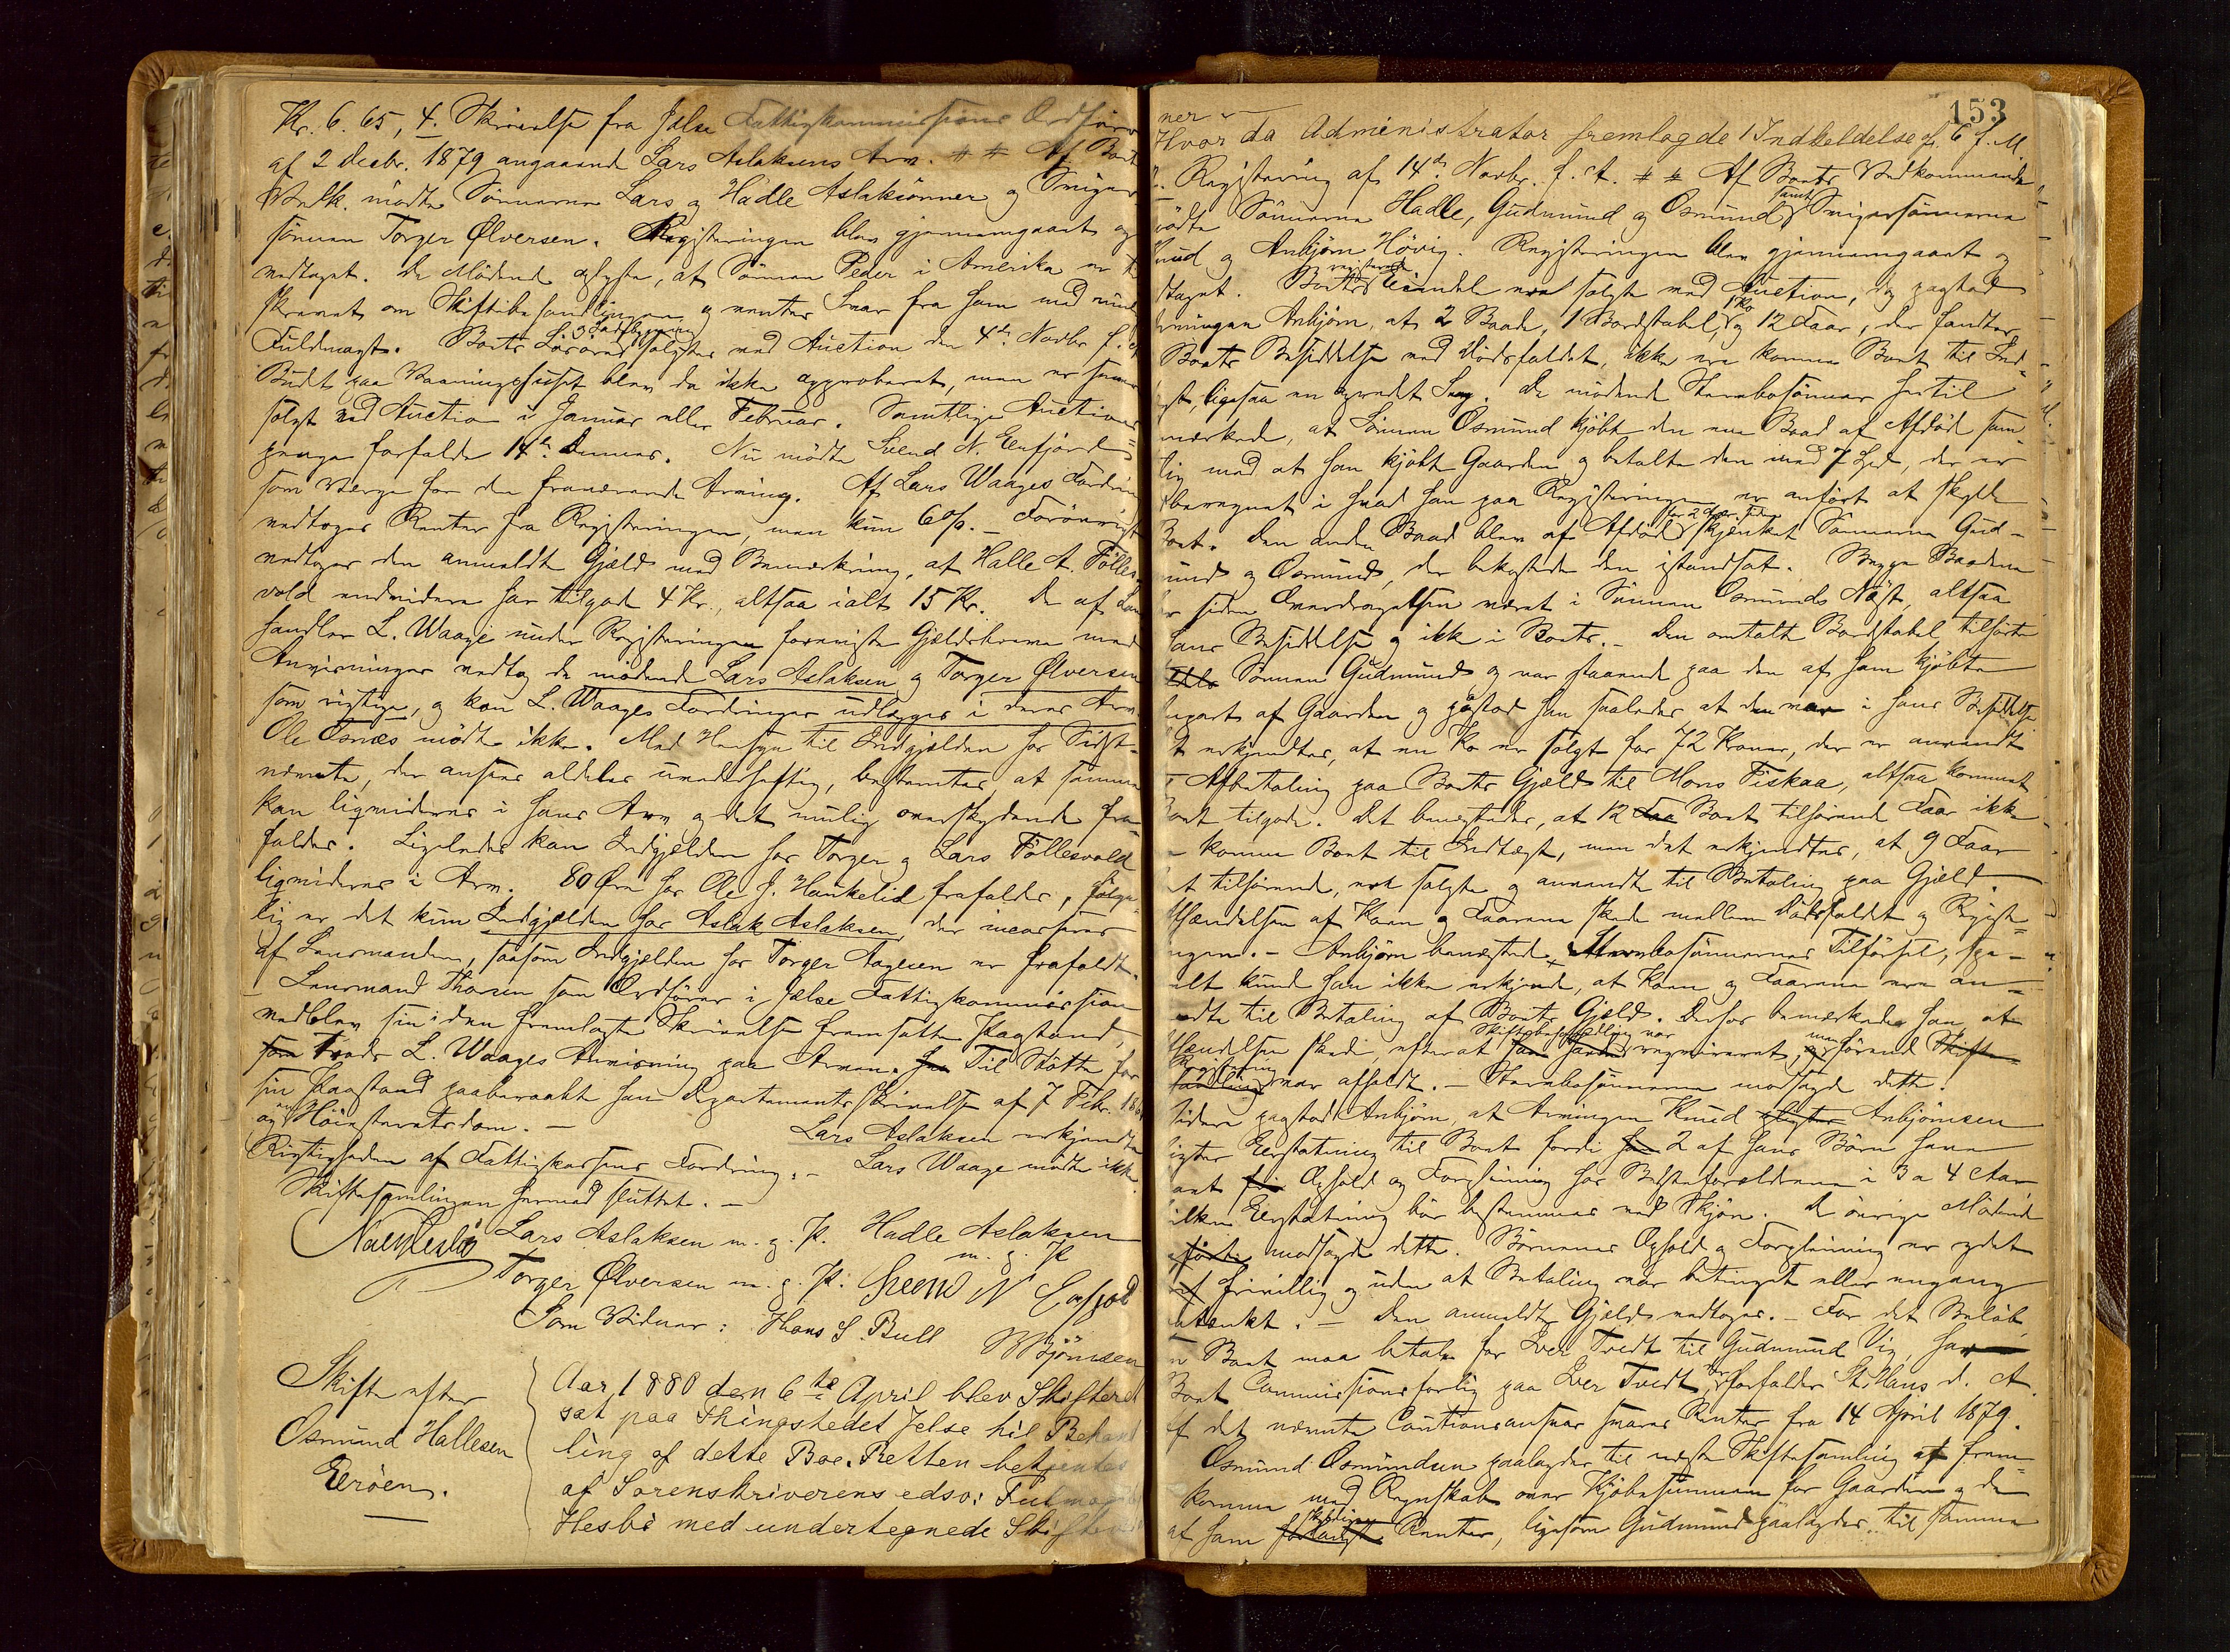 Kr. 6.65, 4. Skrivelse fra Jelse Fattigkommissions Ordförer
af 2 Decbr. 1879 angaaende Lars Aslaksens Arv. # # Af Boets
Vedk. mødte Sønnerne Lars og Hadle Aslaksønner og Sviger-
sønnen Torger Ølversen. Registeringen blev gjennemgaaet og
vedtaget. De Mødende oplyste, at Sønnen Peder i Amerika er
skrevet om Skiftebehandlingen og venter Svar fra ham med
Fuldmagt. Boets Løsøre solgtes ved Auction den 4de Novbr f. A.
Budt paa Vaaningshuset blev da ikke approberet, men er senere
solgt ved Auction i Januar eller Februar. Samtlige Auctions-
penge forfalde 14de dennes. Nu mødte Svend N. Eenfjord
som Værge for den fraværende Arving. Af Lars Waages Fordring
vedtoges Renter fra Registeringen, men kun 6 %. - Forøvrigt
vedtoges den anmeldte Gjæld med Bemærkning, at Halle A. Følles-
vold endvidere har tilgode 4 Kr., altsaa ialt 15 Kr. De af Land-
handler L. Waage under Registeringen foreviste Gjældsbreve med
Anvisninger vedtog de mødende Lars Aslaksen og Torger Ølversen
som rigtige, og kan L. Waages Fordringer udlægges i deres Arv.
Ole Osnæs mødte ikke. Med Hensyn til Indgjælden hos Sidst-
nævnte, der ansees aldeles uvederhæftig, bestemtes, at samme
kan ligvideres i hans Arv og det mulig overskydende fra-
faldes. Ligeledes kan Indgjælden hos Torger og Lars Føllesvold
ligvideres i Arv. 80 Øre hos Ole J. Haukelid frafaldes, følge-
lig er det kun Indgjælden hos Aslak Aslaksen, der incasseres
af Lensmanden, saasom Indgjælden hos Torger Aagesen er frafaldt.
Lensmand Thorsen som Ordfører i Jelse Fattigkommission
vedblev sin i den fremlagte Skrivelse fremsatte Paastand,
som trods L. Waages Anvisning paa Arven. Til Støtte for
sin Paastand paaberaabte han Departementsskrivelse af 7 Febr.
og en Høiesteretsdom. - Lars Aslaksen erkjendte
Rigtigheden af Fattigkassens Fordring. - Lars Waage mødte ikke.
Skiftesamlingen hermed sluttet. -
Lars Aslaksen m. p. P. Hadle Aslaksen
m. p. P
Torger Ølversen m. p. P. Svend N Eenfjod
Som Vidner: Hans S. Bull
Bjönsen
Skifte efter
Osmund Hallesen
Erøen.
Aar 1880 den 6te April blev Skifteret
sat paa Thingstedet Jelse til Behand
ling af dette Boe. Retten betjentes
af Sorenskriverens edsv: Fulmægtig
Hesbö med undertegnede Skiftevid
153
ner -
Hvor da Administrator fremlagde 1 Indkeldelse af 6 f. M.
2. Registering af 14de Novbr. f. A. # # Af Boets Vedkommende
mødte Sønnerne Hadle, Gudmund og Osmund samt Svigersønnerne
Knud og Anbjørn Høvig. Registeringen blev gjennemgaaet og
vedtaget. Boets registrerede Eiendele er solgte ved Auction, og paastod
Arvingen Anbjørn, at 2 Baade, 1 Bordstabel, 1 Ko og 12 Faar, der fandtes
Boets Besiddelse ved Dødsfaldet, ikke ere komne Boet til Ind-
tægt, ligesaa en opredt Seng. De mødende Stervbosønner hertil
bemærkede, at Sønnen Osmund kjøbte den ene Baad af Afdøde sam-
tidig med at han kjøbte Gaarden og betalte den med 7 Spd, der er
beregnet i hvad han paa Registeringen er anført at skylde
Boet. Den anden Baad blev af Afdøde for 2 Aar siden skjænket Sønnerne Gud-
mund og Osmund, der bekostede den istandsat. Begge Baadene
har siden Overdragelsen været i Sønnen Osmunds Nøst, altsaa
hans Besiddelse og ikke i Boets. - Den omtalte Bordstabel tilhørte
Sønnen Gudmund og var staaende paa den af ham kjøbte
Anpart af Gaarden og paastod han saaledes at den var i hans Besiddelse
Det erkjendtes, at en Ko er solgt for 72 Kroner, der er anvendt
til Afbetaling paa Boets Gjæld til Mons Fiskaa, altsaa kommet
Boet tilgode. Det benegtedes, at 12 Boet tilhørende Faar ikke
er komne Boet til Indtægt, men det erkjendtes, at 9 Faar
Boet tilhørende, ere solgte og anvendte til Betaling paa Gjæld.
Afhændelsen af Koen og Faarene skede mellem Dødsfaldet og Registe-
ringen. - Anbjørn benegtede Stervbosønnernes Tilførsel, spe-
cielt kunde han ikke erkjende, at Koen og Faarene ere an-
vendte til Betaling af Boets Gjæld. Derfor bemærkede han, at
Afhændelsen skede, efterat Skiftebehandling var requireret, men førend Skifte-
Registering var afholdt. - Stervbosønnerne modsagde dette.
Videre paastod Anbjørn, at Arvingen Knud Anbjørnsen
pligter Erstatning til Boet fordi 2 af hans Børn have
havt Ophold og Forpleining hos Bedsteforældrene i 3 a 4 Aar
hvilken Erstatning bør bestemmes ved Skjøn. De øvrige Mødende
modsagde dette. Børnenes Ophold og Forpleining er ydet
frivillig og uden at Betaling var betinget eller engang
paatænkt. - Den anmeldte Gjæld vedtoges. - For det Beløb,
som Boet maa betale for Iver Tvedt til Gudmund Vig, har
Boet Commissionsforlig paa Iver Tvedt, der forfalder St. Hans d. A.
Af det nævnte Cautionsansvar svares Renter fra 14 April 1879.
Osmund Osmundsen paalagdes til næste Skiftesamling at frem-
komme med Regnskab over Kjøbesummen for Gaarden og de
af ham skyldige Renter, ligesom Gudmund paalagdes til samme